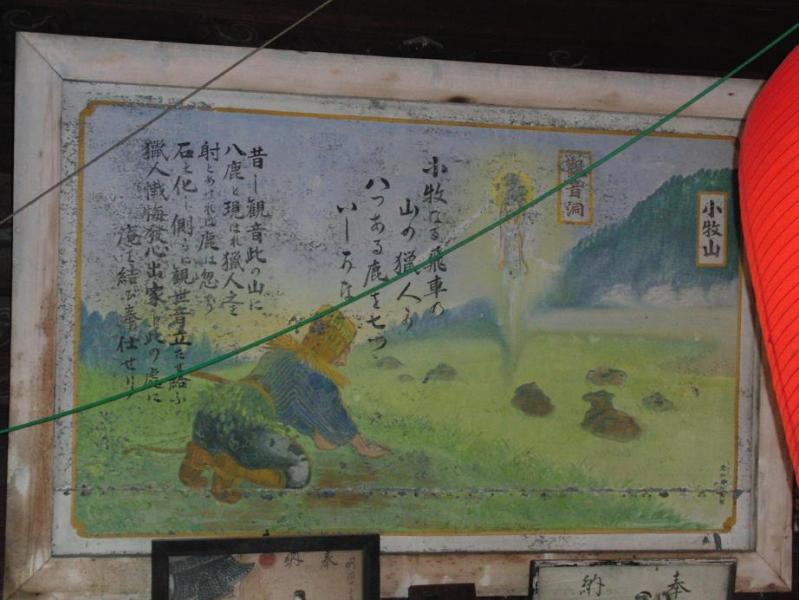 小牧山
観音洞
小牧なる飛車の
山の猟人が
八つある鹿を七つ
昔し観音此の山に
八鹿と現はれ猟人之を
射とめければ鹿は忽ち
石と化し側らに観世音立たせ給ふ
猟人懺悔發心出家し此の處に
庵を結び奉仕せり
奉納
奉納